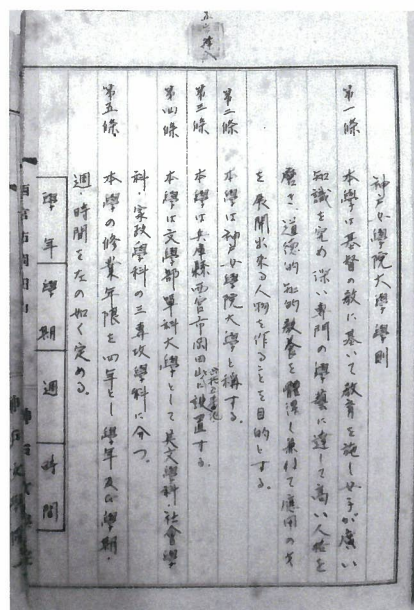 神戸女學院大學學則
第一條 本學は基督の敎に基いて敎育を施し女子が廣い
知識を究め深い専門の學藝に達して高い人格を
磨き道德的知的敎養を體得し兼ねて應用の才
を展開出來る人物を作ることを目的とする。
第二條 本學は神戸女學院大學と稱する。
第三條 本學は兵庫縣西宮市岡田山に設置する。
第四條 本學は文學部單科大學として英文學科・社會學
科・家政學科の三専攻學科に分つ。
第五條 本學の修業年限を四年とし學年及び學期・
週・時間を左の如く定める。
學年
學期
週
時間